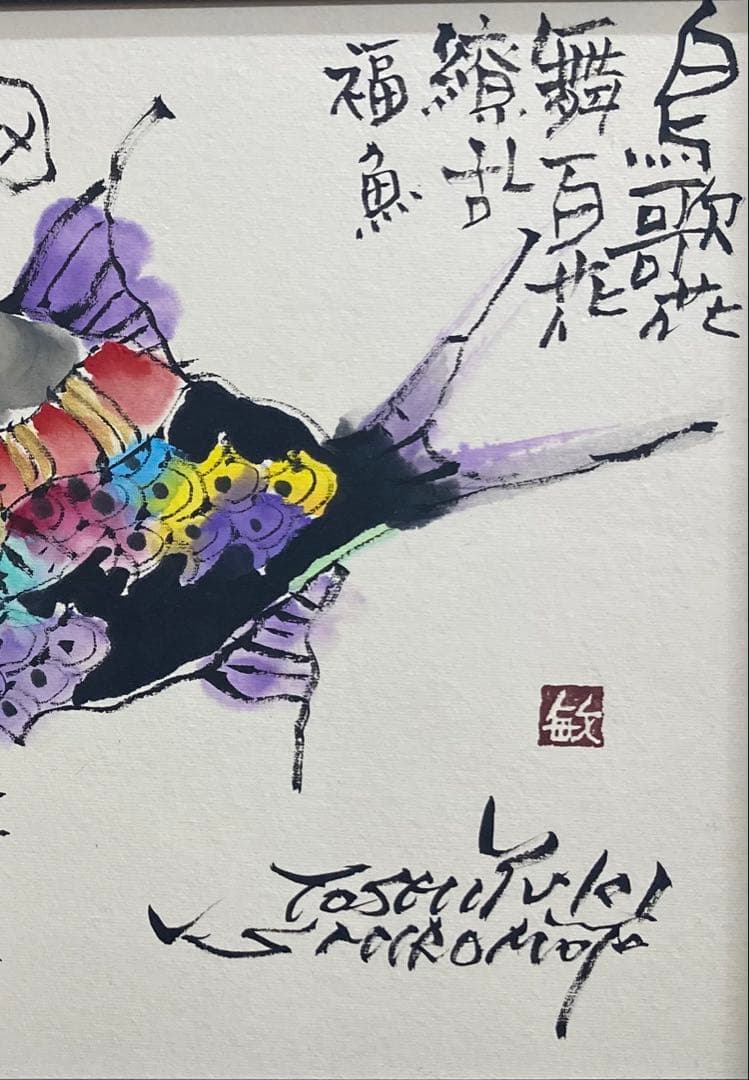 鳥歌花
舞百花
繚乱
福魚
敏
TOSHIYUKI
SHIROMOTO